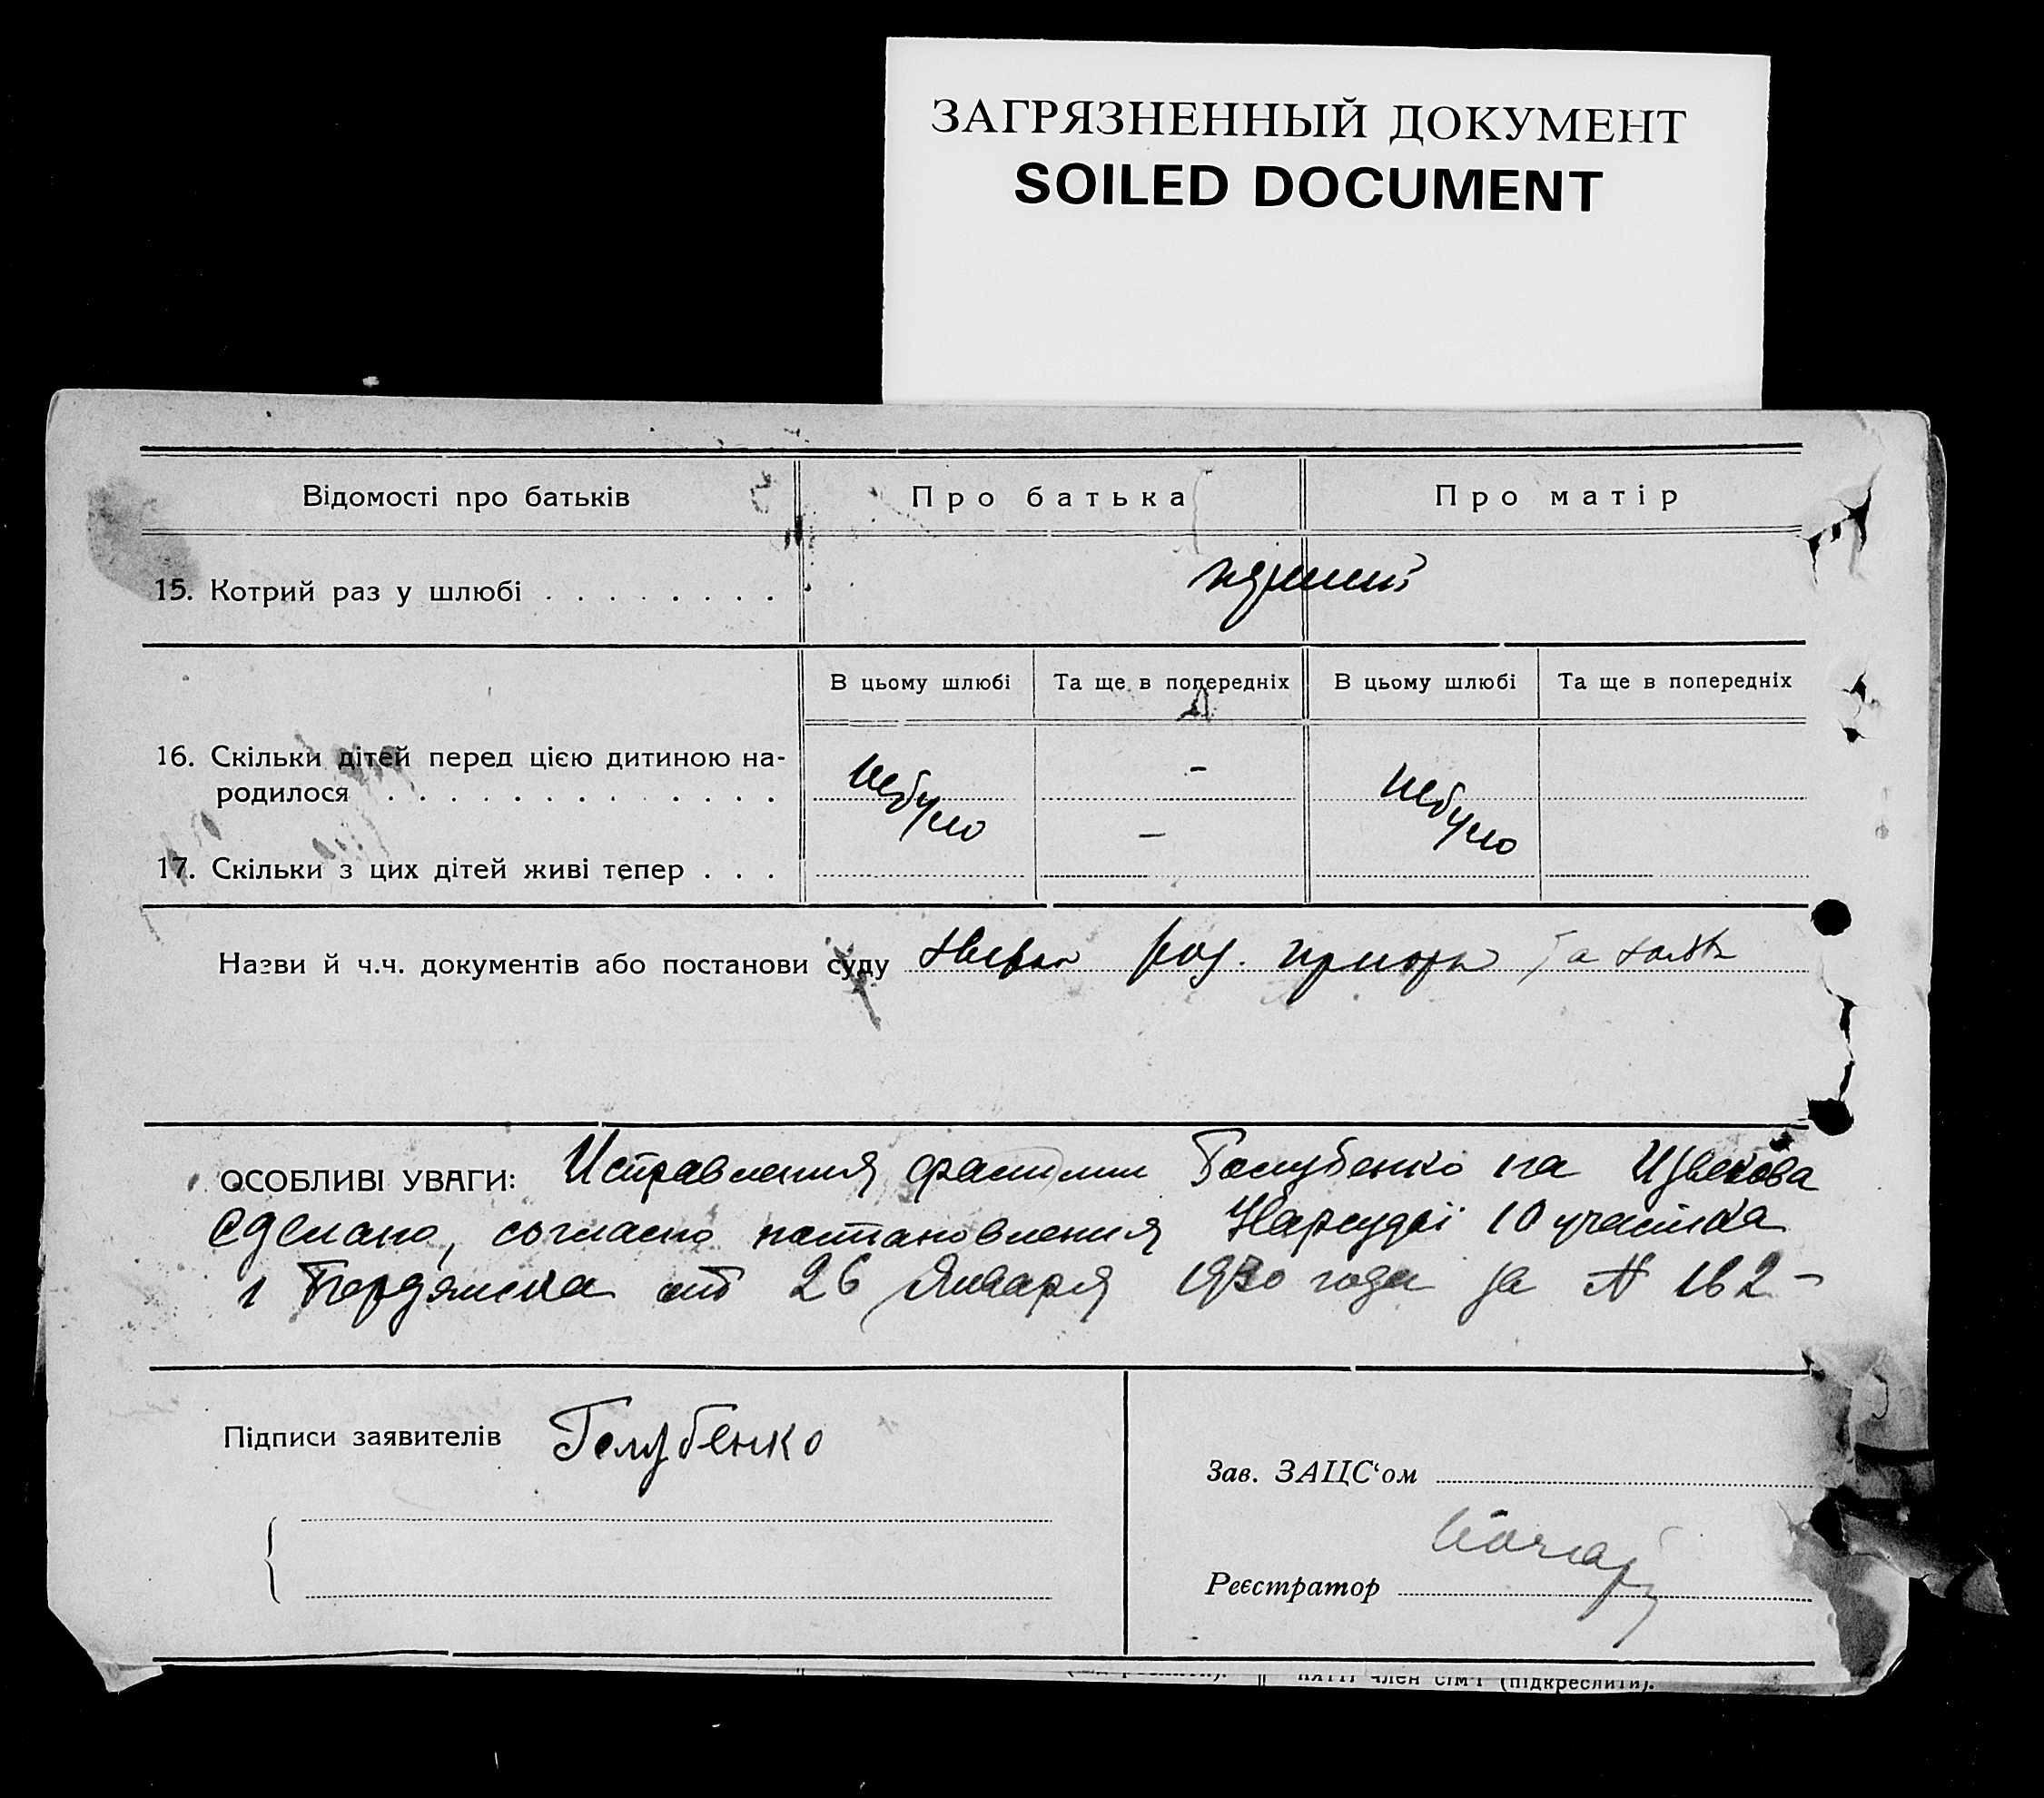 ЗАГРЯЗНЕННЫЙ ДОКУМЕНТ
SOILED DOCUMENT
Відомості про батьків Про батька Про матір
15. Котрий раз у шлюбі . . . . . . . .
В цьому шлюбі Та ще в попередніх В цьому шлюбі Та ще в попередніх
16. Скільки дітей перед цією дитиною на-
родилося . . . . . . . . . . . . . небуло - небуло
17. Скільки з цих дітей живі тепер . . . -
Назви й ч.ч. документів або постанови суду та
ОСОБЛИВІ УВАГИ: Исправления фамилии Голубенко на
сделано, согласно постановления Нарсуда 10 участка
г Бердянска от 26 января 1930 года за N 162 -
Підписи заявителів Голубенко
Зав. ЗАЦС‘ом
Реєстратор
член сім'ї (підкреслити).